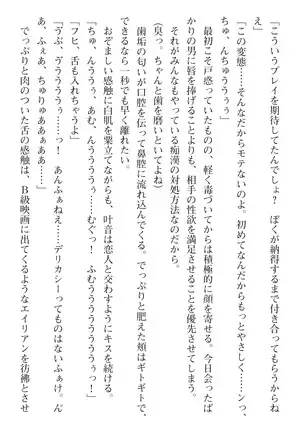 「こういうプレイを期待してたんでしょ？　ぼくが納得するまで付き合ってもらうからねえ」
「この変態……そんなだからモテないのよ。初めてなんだからもっとやさしく……ンっ、ちゅっ、んちゅううぅっ」
最初こそ戸惑っていたものの、軽く毒づいてからは積極的に顔を寄せる。今日会ったばかりの男に唇を捧げることよりも、相手の性欲を満足させることを優先させてしまう。
それがみんなもやってる、痴漢の対処方法なのだから。
（臭っ。ちゃんと歯を磨いといてよね）
歯垢の匂いが口腔を伝って鼻腔に流れ込んでくる。でっぷりと肥えた頬はギトギトで、できるなら一秒でも早く離れたい。
おぞましい感触に白肌を粟立てながらも、叶音は恋人と交わすようにキスを続ける。
「ちゅ、んうううぅ、あむ、んううぅ……むぐっ！　ふむううううううぅっ！」
「フヒ、舌も入れちゃうよ」
「うぶ、うううううぅ……っ！　あんふぁねえ……デリカシーってものはないふぁけ。んあ、ふぁあ、ちゅりゅぁぁぁぁああっ」
でっぷりと肉のついた舌の感触は、Ｂ級映画に出てくるようなエイリアンを彷彿とさせ